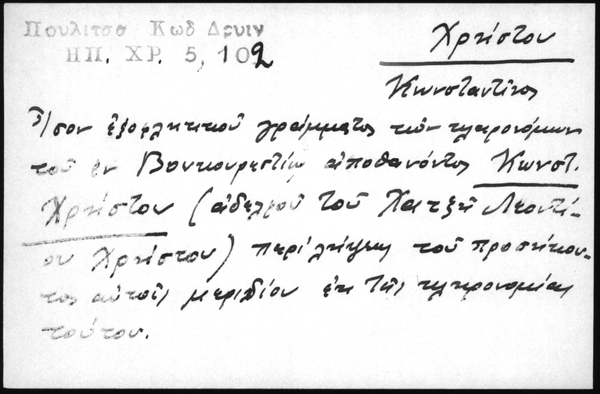 Πουλιτσα Κωδ Δρυιν
ΗΠ. ΧΡ. 5, 102
Χρήστου
Κωνσταντῖνος
Ἴσον ἐξοφλητικοῦ γράμματος τῶν κληρονόμων
τοῦ ἐν Βουκουρεστίῳ ἀποθανόντος Κωνστ.
Χρήστου (ἀδελφοῦ τοῦ Χατζῆ Λεοντί-
ου Χρήστου) περὶ λήψεως τοῦ προσήκον-
τος αὐτοῖς μεριδίου ἐκ τῆς κληρονομίας
τούτου.